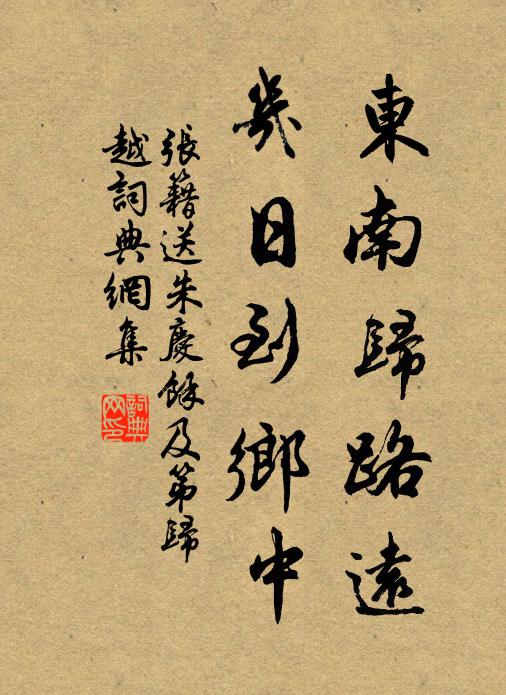 東南歸路遠
幾日到鄉中
張籍送朱慶餘及第歸
越詞典網集
詞典
网印